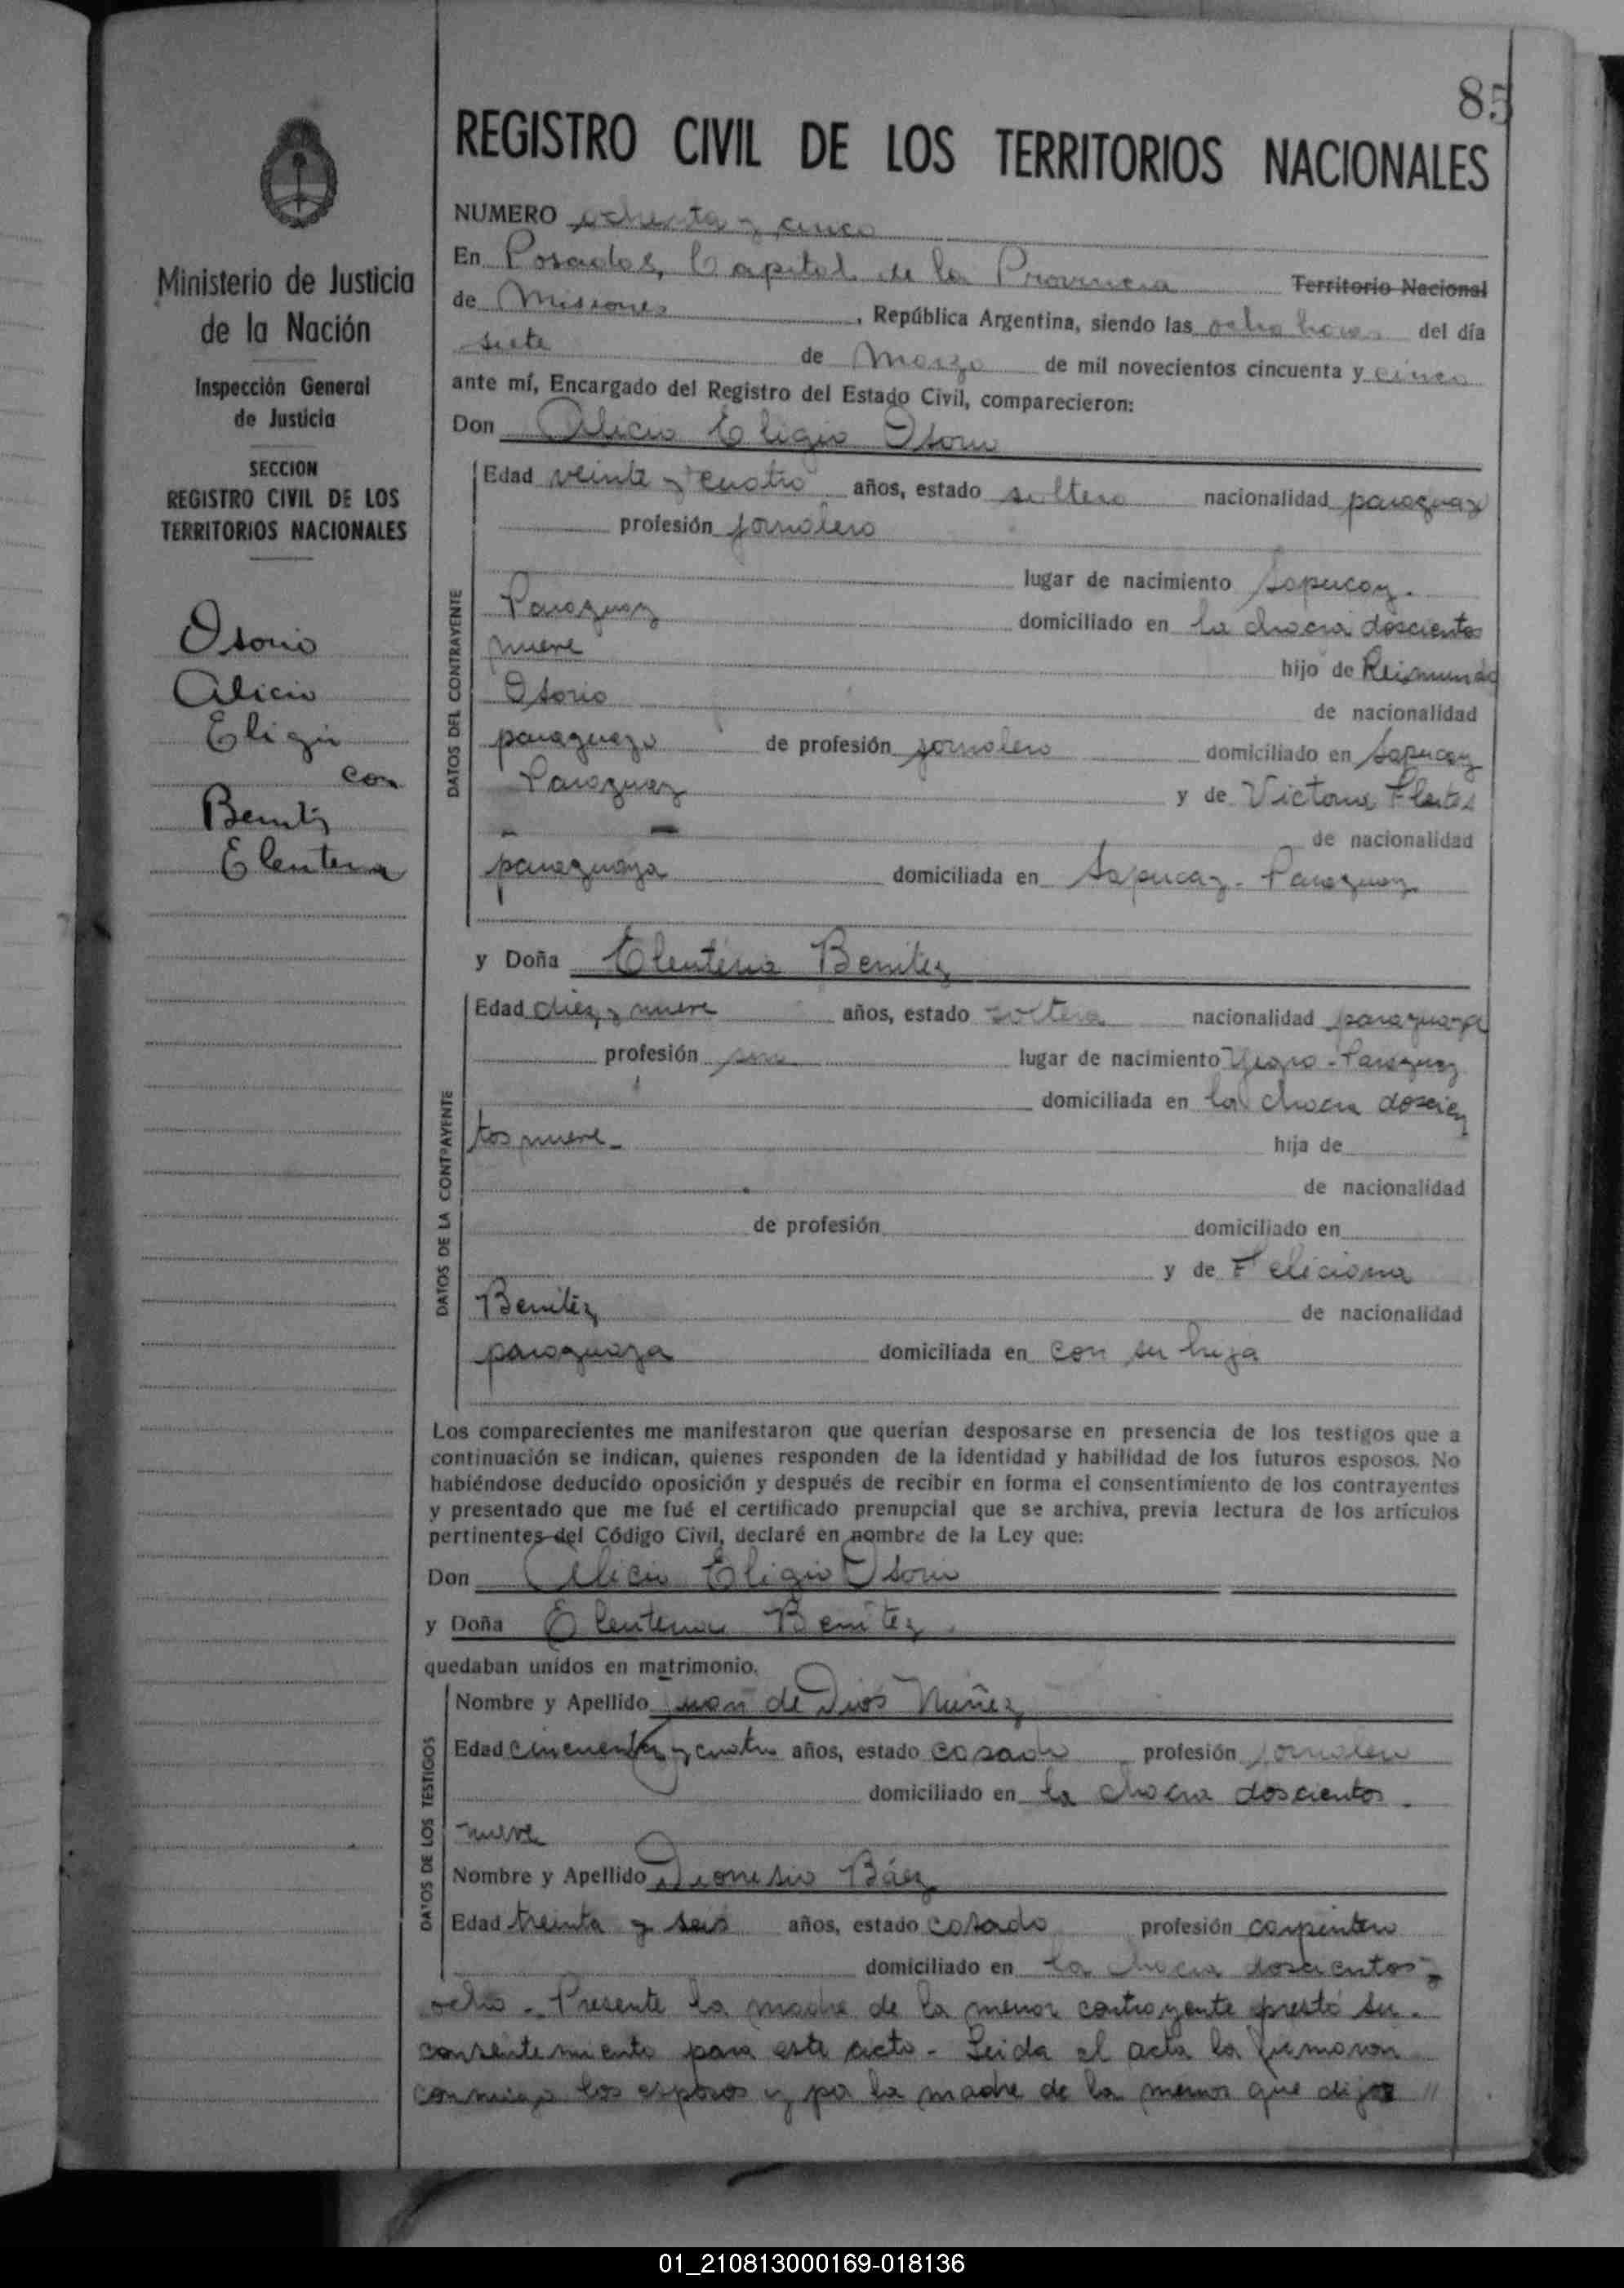 85
REGISTRO CIVIL DE LOS TERRITORIOS NACIONALES
Ministerio de Justicia
de la Nación
Inspección General
de Justicia
SECCION
REGISTRO CIVIL DE LOS
TERRITORIOS NACIONALES
Osorio
Alicio
Eligio
con
Benitez
Eleuteria
NUMERO ochenta y cinco
En Posadas, Capital de la Provincia Territorio Nacional
de Misiones, República Argentina, siendo las ocho horas del día
siete de Marzo de mil novecientos cincuenta y cinco
ante mí, Encargado del Registro del Estado Civil, comparecieron:
Don Alicio Eligio Osorio
DATOS DEL CONTRAYENTE
Edad veinte y cuatro años, estado soltero nacionalidad paraguay
profesión jornalero
lugar de nacimiento Sapucay.
Paraguay domiciliado en la chacra doscientos
nueve hijo de Reimundo
Osorio de nacionalidad
paraguayo de profesión jornalero domiciliado en Sapucay
Paraguay y de Victoria Fleitas
de nacionalidad
paraguaya domiciliada en Sapucay - Paraguay
y Doña Eleuteria Benitez
DATOS DE LA CONTRAYENTE
Edad diez y nueve años, estado soltera nacionalidad paraguaya
profesión lugar de nacimiento Yegro - Paraguay
domiciliada en la chacra doscien
tos nueve - hija de
de nacionalidad
de profesión domiciliado en
y de Feliciana
Benitez de nacionalidad
paraguaya domiciliada en con su hija
Los comparecientes me manifestaron que querían desposarse en presencia de los testigos que a
continuación se indican, quienes responden de la identidad y habilidad de los futuros esposos. No
habiéndose deducido oposición y después de recibir en forma el consentimiento de los contrayentes
y presentado que me fué el certificado prenupcial que se archiva, previa lectura de los artículos
pertinentes del Código Civil, declaré en nombre de la Ley que:
Don Alicio Eligio Osorio
y Doña Eleuteria Benitez
quedaban unidos en matrimonio.
DATOS DE LOS TESTIGOS
Nombre y Apellido Juan de Dios Nuñez
Edad cincuenta y cuatro años, estado casado profesión jornalero
domiciliado en la chacra doscientos
nueve
Nombre y Apellido Dionisio Báez
Edad treinta y seis años, estado casado profesión carpintero
domiciliado en la chacra doscientos
ocho - Presente la madre de la menor contrayente prestó su
consentimiento para este acto - Leida el acta la firmaron
conmigo los esposos y por la madre de la menor que dijo //
01_210813000169-018136